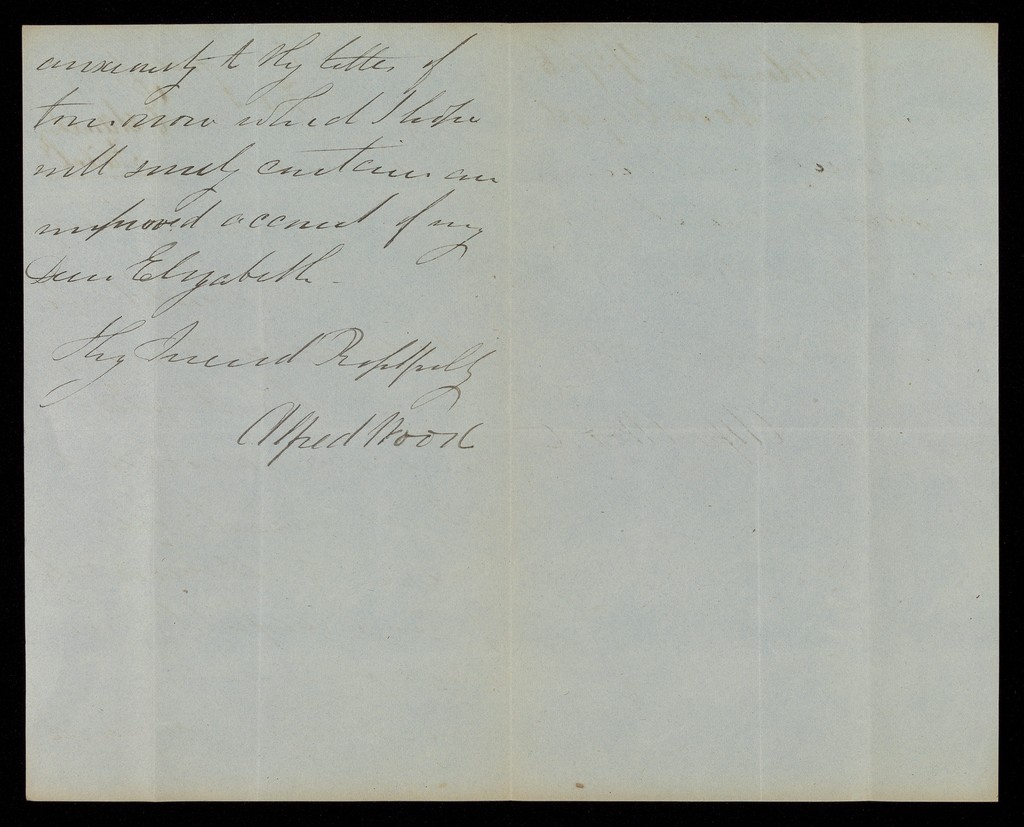 anxiously to thy letter of
tomorrow which I hope
will surely contain an
improved account of my
Dear Elizabeth -
Thy Friend Respectfully
Alfred Wood